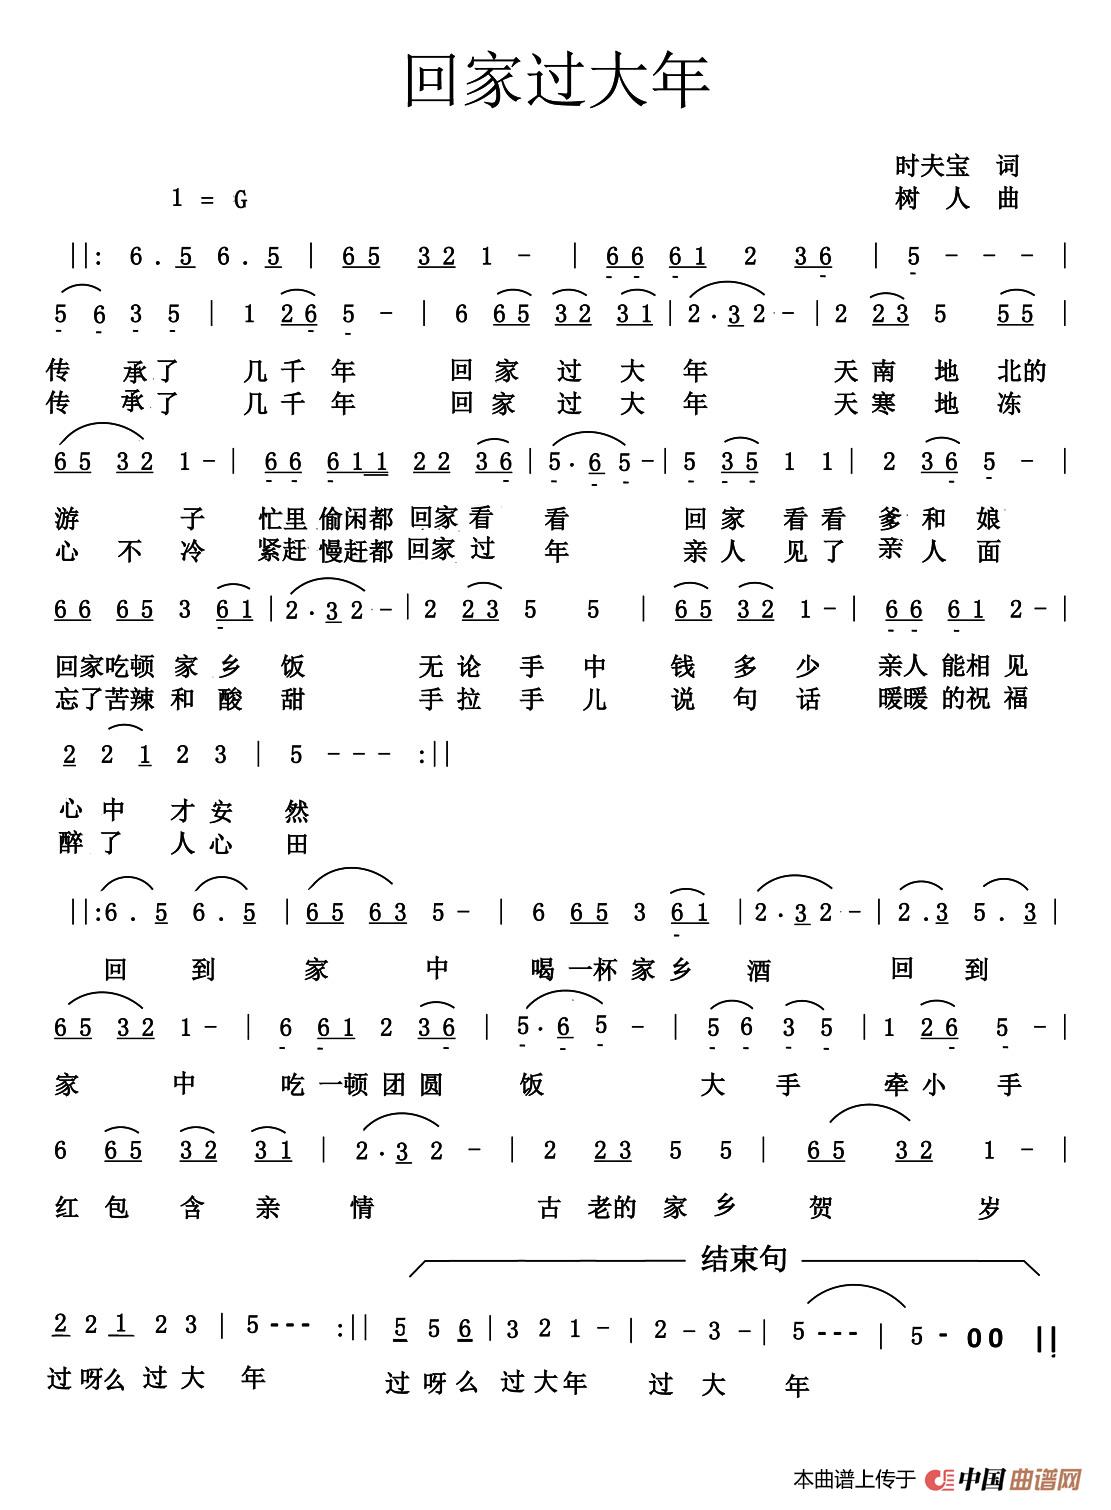 回家过大年
时夫宝 词
1 = G
树 人 曲
||: 6 . 5 6 . 5 | 6 5 3 2 1 - | 6 6 6 1 2 3 6 | 5 - - - |
5 6 3 5 | 1 2 6 5 - | 6 6 5 3 2 3 1 | 2 . 3 2 - | 2 2 3 5 5 5 |
传 承 了 几 千 年 回 家 过 大 年 天 南 地 北的
传 承 了 几 千 年 回 家 过 大 年 天 寒 地 冻
6 5 3 2 1 - | 6 6 6 1 1 2 2 3 6 | 5 . 6 5 - | 5 3 5 1 1 | 2 3 6 5 - |
游 子 忙里 偷闲都 回家 看 看 回 家 看 看 爹 和 娘
心 不 冷 紧赶 慢赶都 回家 过 年 亲 人 见 了 亲 人 面
6 6 6 5 3 6 1 | 2 . 3 2 - | 2 2 3 5 5 | 6 5 3 2 1 - | 6 6 6 1 2 - |
回家吃顿 家 乡 饭 无 论 手 中 钱 多 少 亲人 能相 见
忘了苦辣 和 酸 甜 手 拉 手 儿 说 句 话 暖暖 的祝 福
2 2 1 2 3 | 5 - - - :||
心 中 才 安 然
醉 了 人 心 田
||: 6 . 5 6 . 5 | 6 5 6 3 5 - | 6 6 5 3 6 1 | 2 . 3 2 - | 2 . 3 5 . 3 |
回 到 家 中 喝 一杯 家 乡 酒 回 到
6 5 3 2 1 - | 6 6 1 2 3 6 | 5 . 6 5 - | 5 6 3 5 | 1 2 6 5 - |
家 中 吃 一顿 团 圆 饭 大 手 牵 小 手
6 6 5 3 2 3 1 | 2 . 3 2 - | 2 2 3 5 5 | 6 5 3 2 1 - |
红 包 含 亲 情 古 老的 家 乡 贺 岁
结束句
2 2 1 2 3 | 5 - - - :|| 5 5 6 | 3 2 1 - | 2 - 3 - | 5 - - - | 5 - 0 0 ||
过 呀么 过 大 年 过 呀 么 过 大 年 过 大 年
本曲谱上传于 中国曲谱网